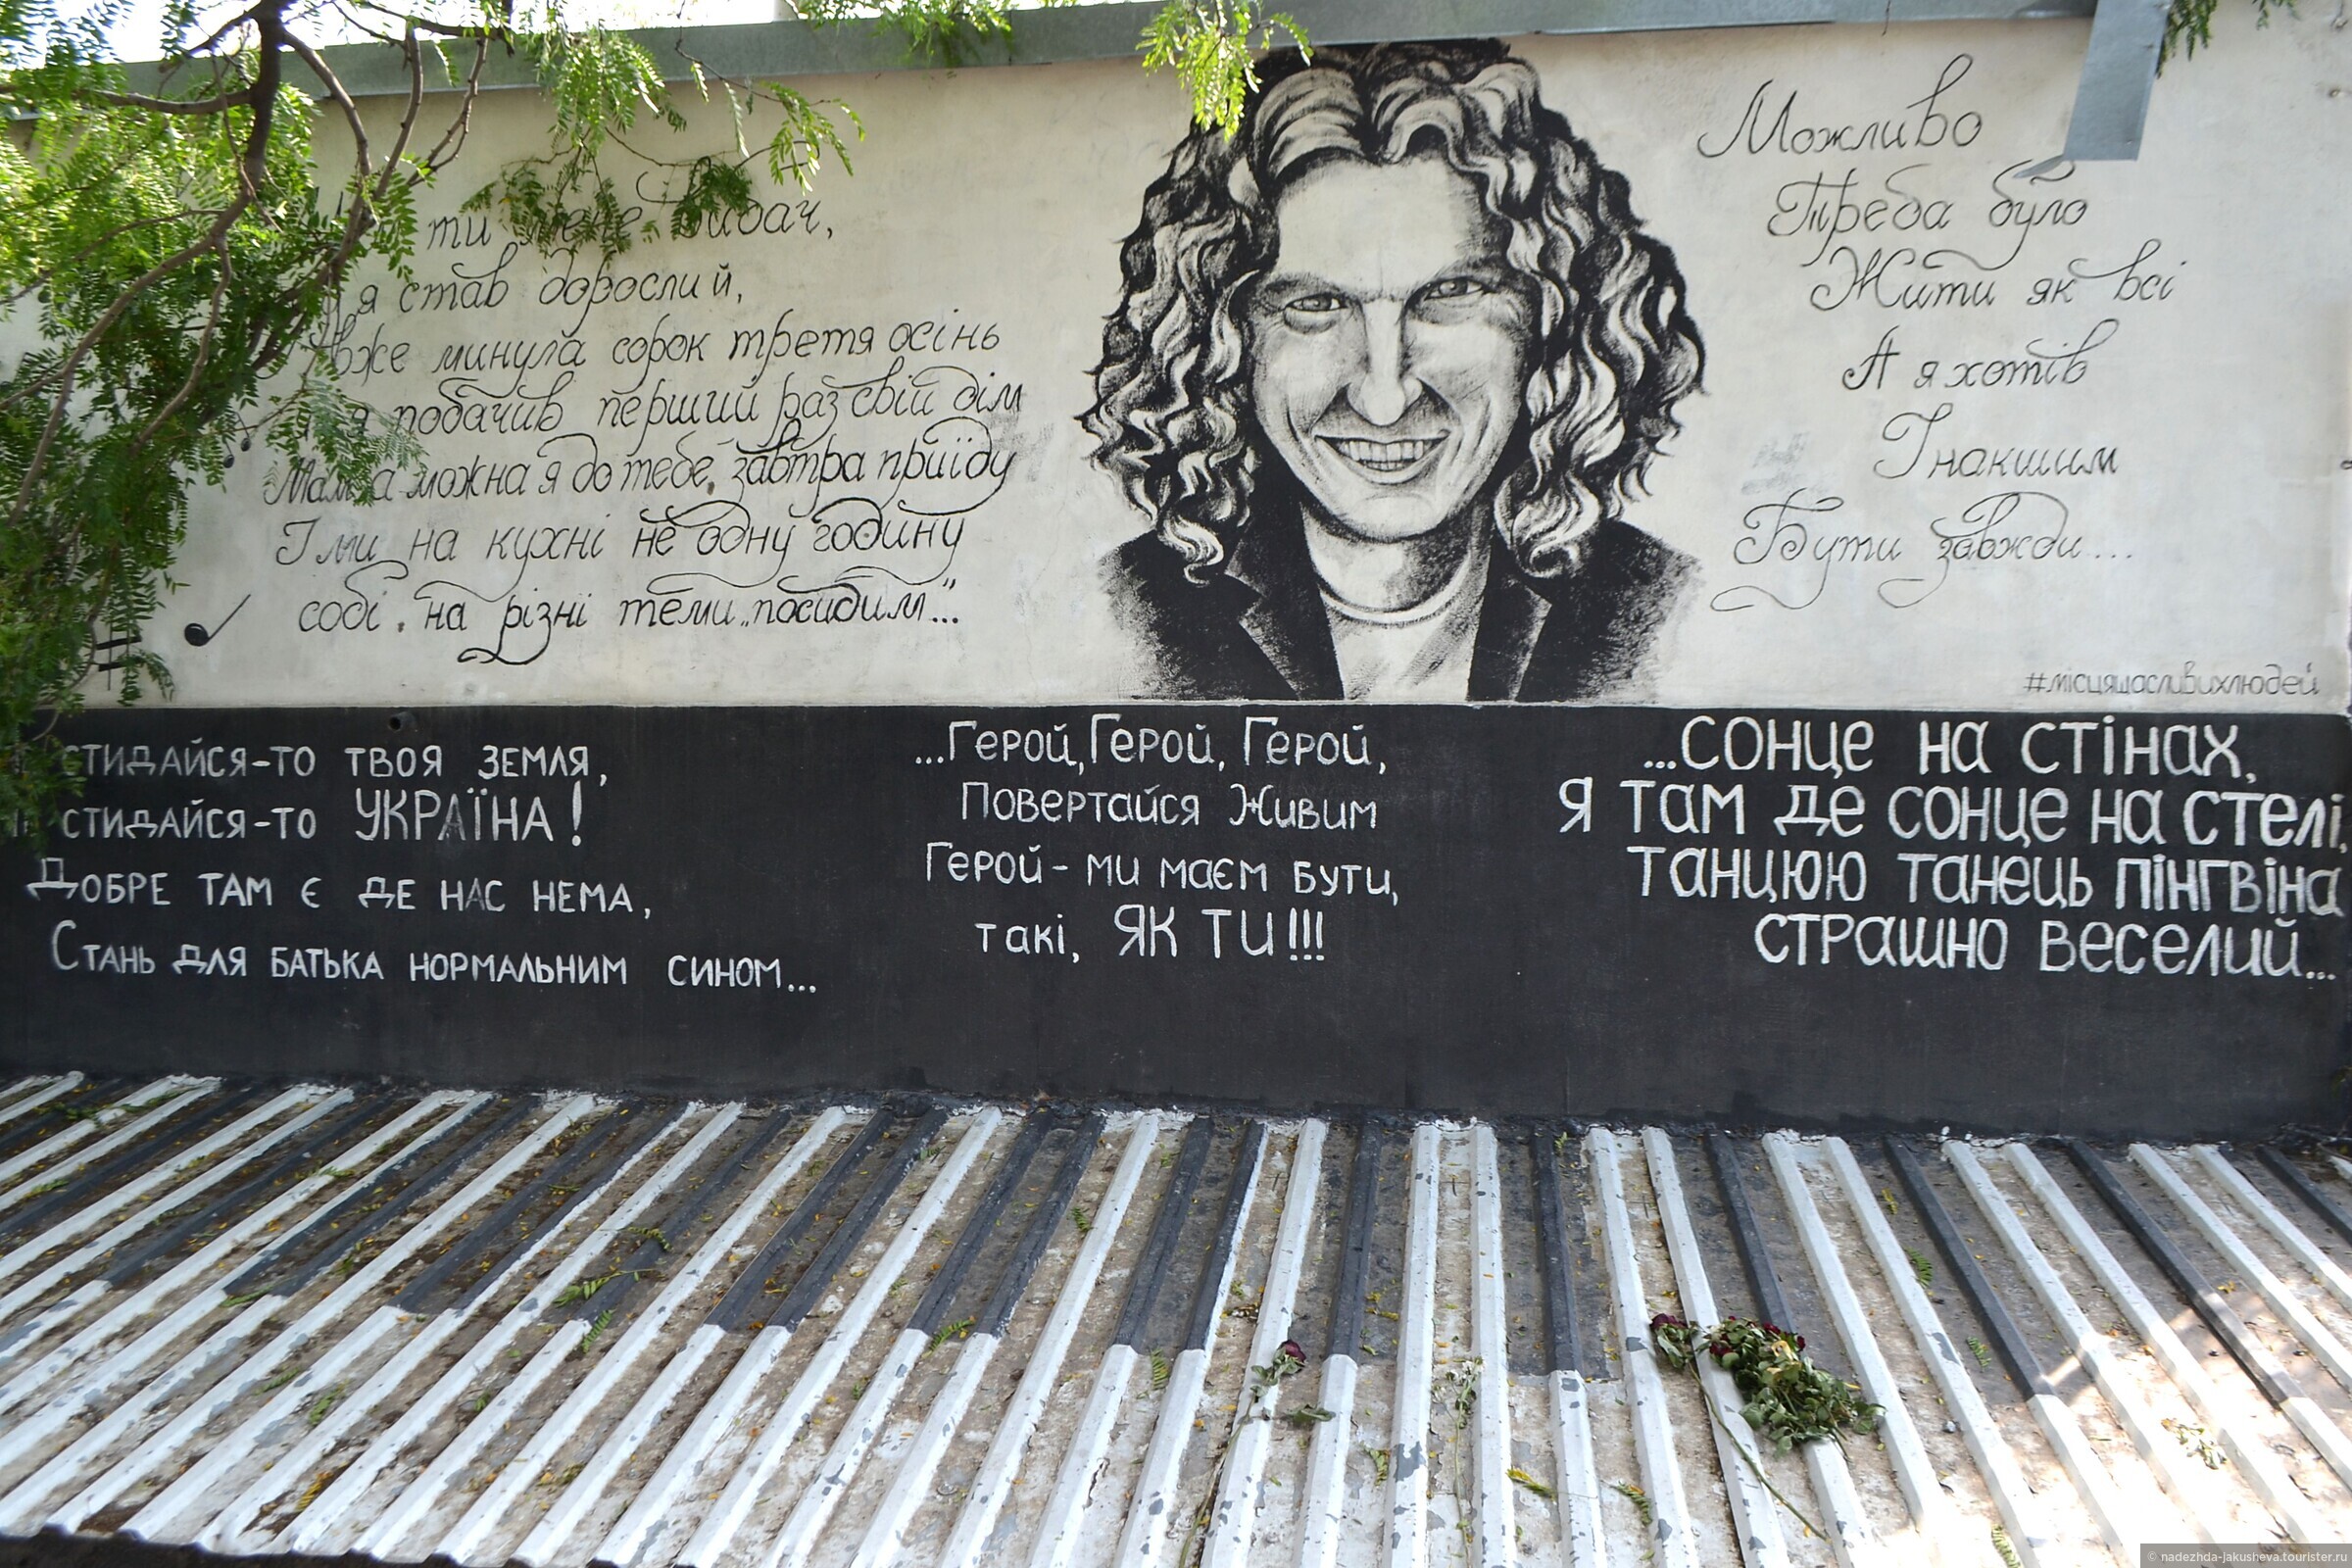 ти мене вибач,
я став дорослий,
вже минула сорок третя осінь
я побачив перший раз свій дім
Мам, а можна я до тебе завтра приїду
І ми на кухні не одну годину
собі, на різні теми „посидим"...
Можливо
Треба було
Жити як всі
А я хотів
Інакшим
Бути завжди...
#місцящасливихлюдей
стидайся-то твоя земля,
стидайся-то УКРАЇНА!
Добре там є де нас нема,
Стань для батька нормальним сином...
...Герой, Герой, Герой,
Повертайся Живим
Герой - ми маєм бути,
такі, ЯК ТИ!!!
...сонце на стінах,
я там де сонце на стелі,
танцюю танець пінгвіна
страшно веселий...
© nadezhda-jakusheva.tourister.ru